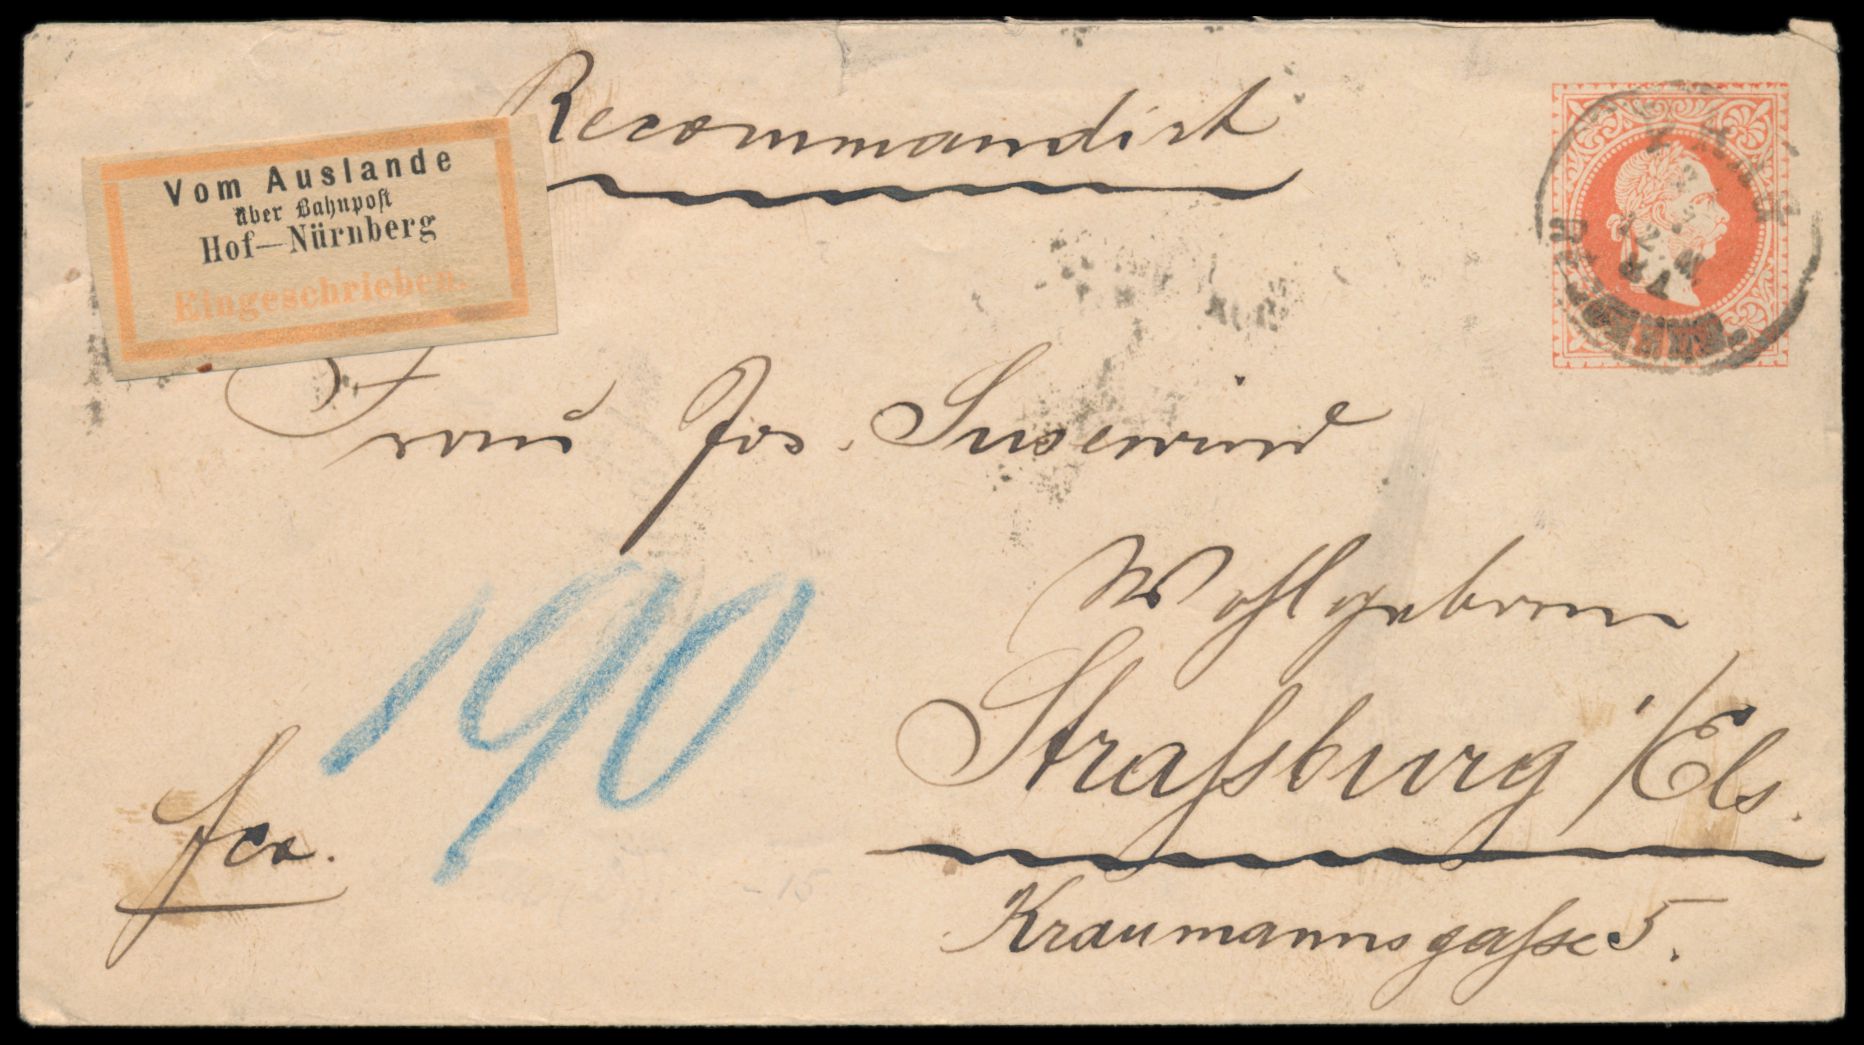 Recommandirt
Vom Auslande
über Bahnpost
Hof—Nürnberg
Eingeschrieben.
Frau Jos. Susewind
Wohlgeboren
Straßburg i/Els.
Kraumannsgasse 5.
190
fco.
-15